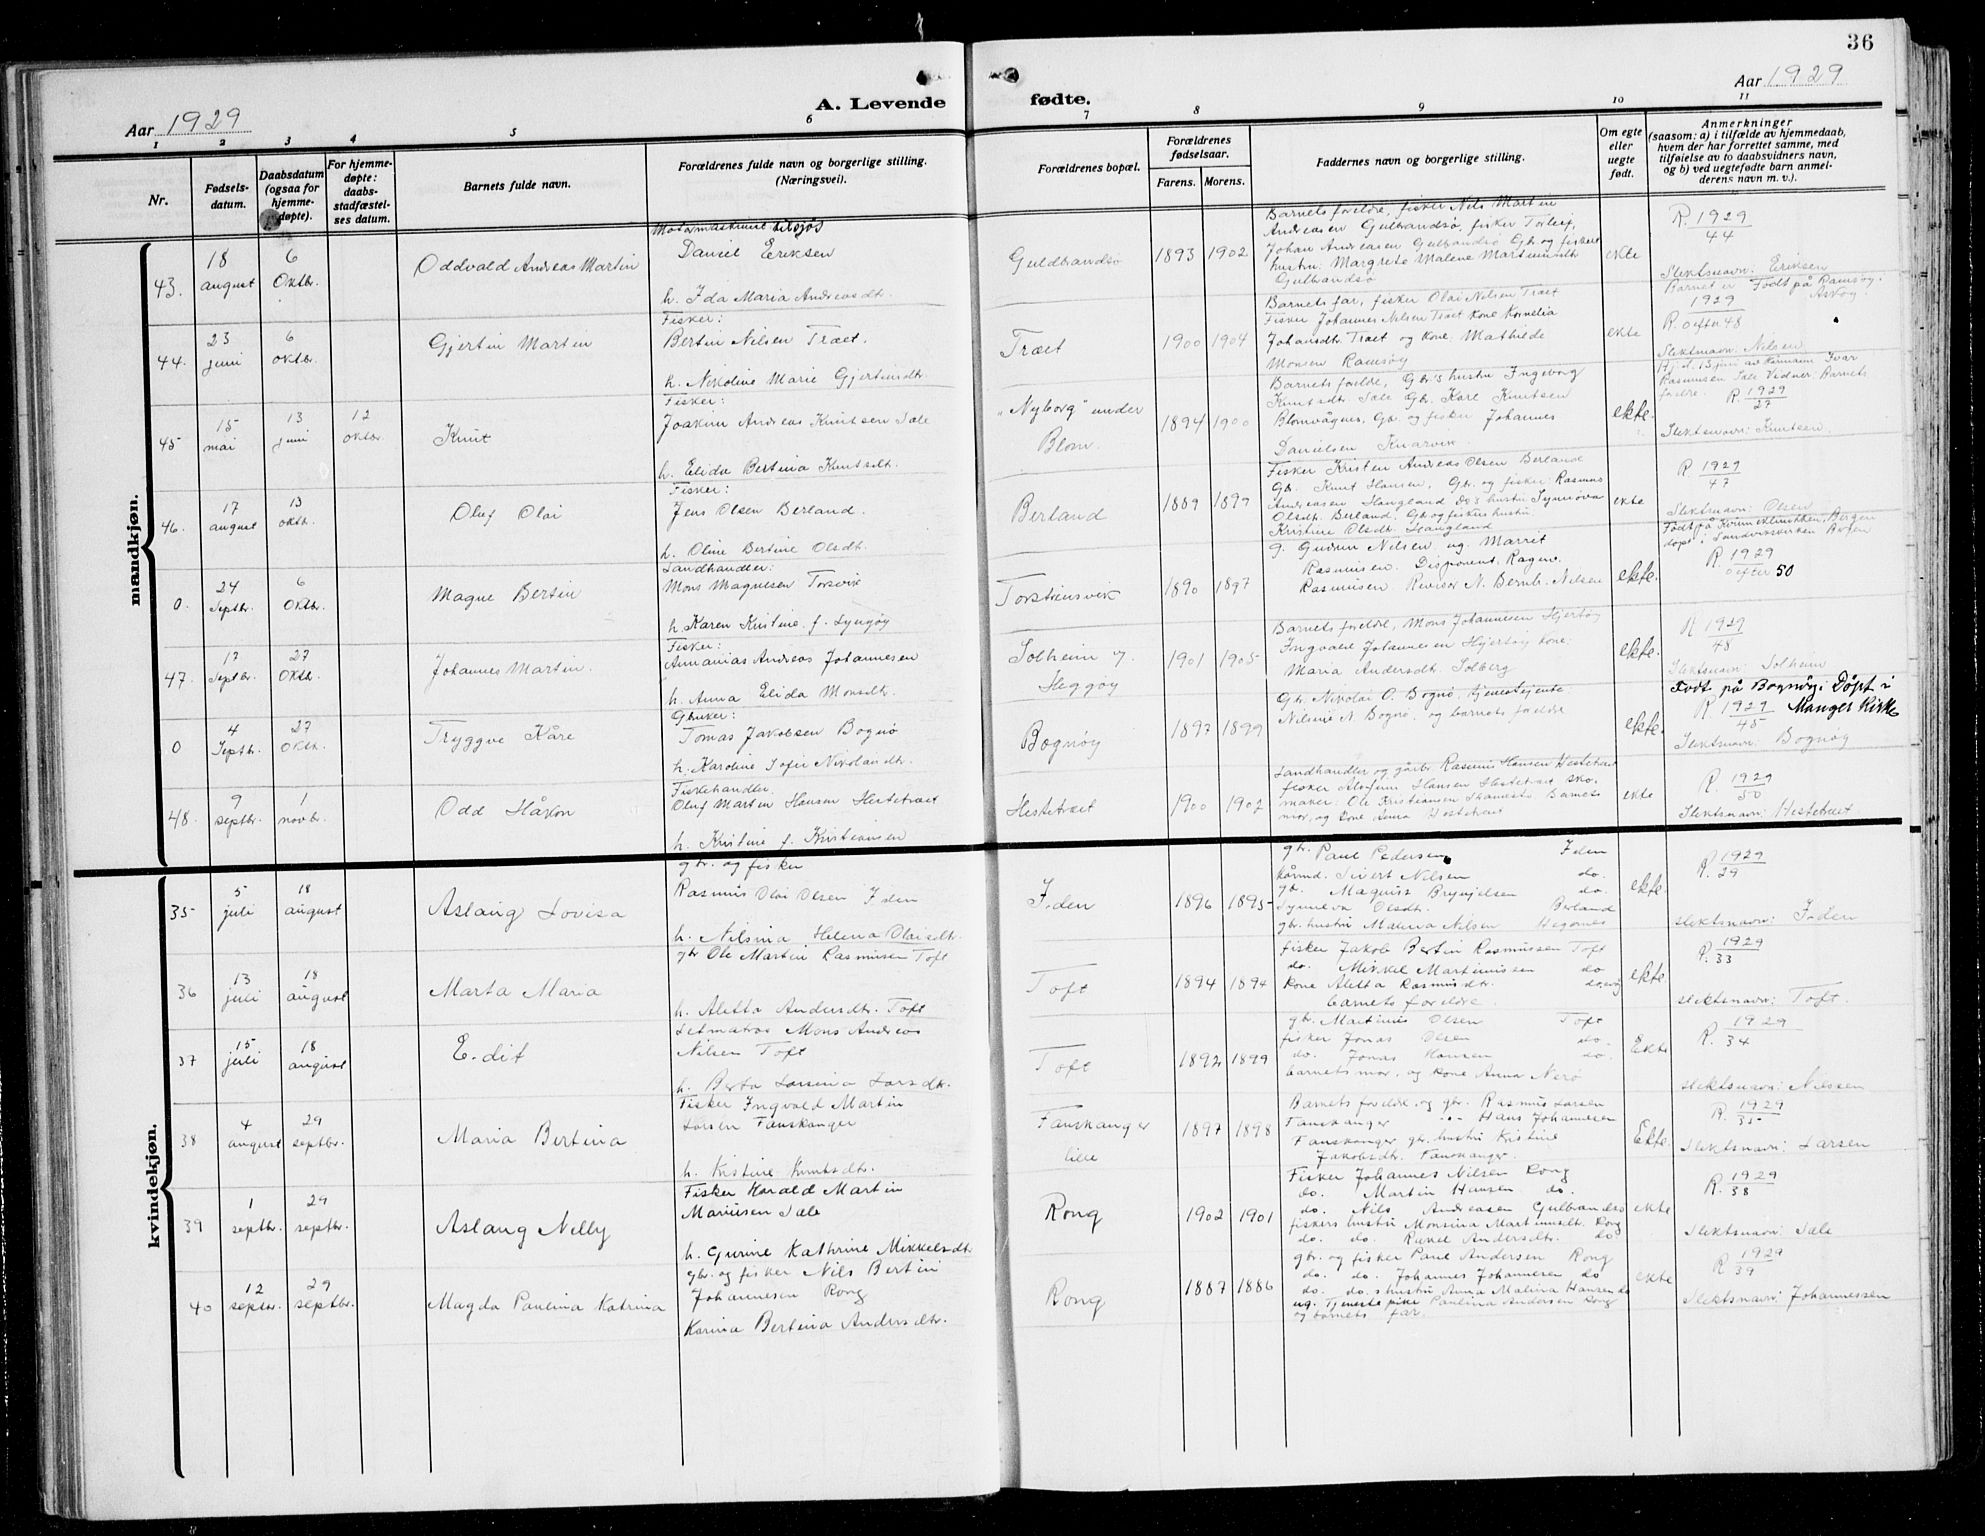 36
Aar 1929
A. Levende fødte.
Aar 1929
1 2 3 4 5 6 7 8 9 10 11
Nr.
Fødsels-
datum.
Daabsdatum
(ogsaa for
hjemme-
døpte).
For hjemme-
døpte:
daabs-
stadfæstel-
ses datum.
Barnets fulde navn.
Forældrenes fulde navn og borgerlige stilling.
(Næringsvei).
Forældrenes bopæl.
Forældrenes
fødselsaar.
Farens. Morens.
Faddernes navn og borgerlige stilling.
Om egte
eller
uegte
født.
Anmerkninger
(saasom: a) i tilfælde av hjemmedaab,
hvem der har forrettet samme, med
tilføielse av to daabsvidners navn,
og b) ved uegtefødte barn anmel-
derens navn m. v.).
mandkjøn.
43. 18 august 6 Oktbr. Oddvald Andreas Martin
Motormaskinist tilsjøs
Daniel Eriksen
h. Ida Maria Andreasdt.
Guldbrandsø 1893 1902
Barnets foreldre, fisker Nils Martin
Andreasen Gulbrandsø, fisker Torleif,
Johan Andreasen Gulbrandsø Gbr og fiskers
hustru: Margrete Malene Martinusdt
Gulbrandsø
ekte
R. 1929/44
Slektsnavn: Eriksen
Barnet er Født på Ramsøy.
Askøy.
44. 23 juni 6 oktbr. Gjertin Marten
Fisker:
Bertin Nilsen Træt.
h. Nikoline Marie Gjertinsdtr.
Træt 1900 1904
Barnets far, fisker Olai Nilsen Træt
Fisker Johannes Nilsen Træt kone Kornelia
Johansdt. Træt og kone: Mathilde
Monsen Ramsøy
ekte
1929
R. efter 48
Slektsnavn: Nilsen
45 15 mai 13 juni 12 oktbr. Knut
Fisker:
Joakim Andreas Knutsen Sæle
h. Elida Bertina Knutsdt.
"Nyborg" under
Blom. 1894 1900
Barnets foreldre, Gbr's hustru Ingeborg
Knutsdt. Sæle Gbr. Kåre Knutsen
Blomvågnes, Gbr og fisker Johannes
Danielsen Knarvik.
ekte.
Rasmusen Sæle Vidner: Barnets
foreldre. R. 1929/27
Slektsnavn: Knutsen.
46. 17 august 13 oktbr. Oluf Olai
Fisker:
Jens Olsen Berland.
h. Oline Bertine Olsdt.
Berland 1889 1899
Fisker Kristen Andreas Olsen Berland
Gbr. Knut Hansen, Gbr. og fisker: Rasmus
Andreasen Haugland Do's hustru Synnøva
Olsdt. Berland, Gbr og fiskers hustru
Kristine Olsdt. Haugland
ekte
R. 1929/47
Slektsnavn: Olsen
0. 24 Septbr. 6 Oktbr. Magne Berten
Landhandler:
Mons Magnesen Torsvik
h. Karen Kristine f. Lyngøy
Torsteinsvik 1890 1897
g. Gudrun Nilsen, ug. Marrit
Rasmusen. Disponent Ragnv.
Rasmusen. Revisor N. Bernh. Nilsen
ekte.
Født på Kvinneklinikken, Bergen
døpt i Sandvikskirken Bergen
R. 1929/efter 50
47. 17 Septbr. 27 Oktbr. Johannes Martin.
Fisker:
Annanias Andreas Johannesen
h. Anna Elida Monsdtr.
Solheim y.
Heggøy 1901 1905
Barnets foreldre, Mons Johannesen Hjertøy
Ingvald Johannesen Hjertøy kone:
Maria Andersdt. Solberg
ekte.
R 1929/48
Slektsnavn: Solheim
0 4 Septbr. 27 Oktbr. Tryggve Kåre
Gbruker:
Tomas Jakobsen Bognø
h. Karoline Sofie Nikolaidtr.
Bognøy 1897 1899
Gbr. Nikolai O. Bognø, tjenestejente
Nilsine N. Bognø, og barnets foreldre
ekte.
Født på Bognøy: Døpt i
R 1929/45 Manger Kirke
Slektsnavn: Bognøy
48. 9 septbr. 1 novbr. Odd Håkon
Fiskehandler.
Oluf Marten Hansen Hestetræet
h. Kristine f. Kristiansen
Hestetræet 1900 1902
Landhandler og gårbr. Rasmus Hansen Hestetræet
fisker Alofeus Hansen Hestetræet sko-
maker: Ole Kristiansen Skaneste Barnets
mor, og kone Anna Hestetræet
ekte
R. 1929/50
Slektsnavn: Hestetræet
kvindekjøn.
35 5 juli 18 august Aslaug Lovisa
gbr. og fisker
Rasmus Olai Olsen Iden
h. Nilsina Helena Olaisdtr.
Iden 1896 1895
gbr. Paul Pedersen Iden
kårmd. Sivert Nilsen do.
gbr. Magnus Brynjelsen do.
Synneva Olsdtr. Berland
gbr. hustru Malena Nilsen Hegønes
ekte.
R. 1929/29
slektsnavn: Iden
36 13 juli 18 august Marta Maria
gbr Ole Martin Rasmusen Toft
h. Aletta Andersdtr. Toft
Toft 1894 1894
fisker Jakob Bertin Rasmussen Toft
do. Mikkel Martinussen do
kone Aletta Rasmusdtr. do, og
barnets foreldre.
ekte.
R. 1929/33
slektsnavn: Toft.
37 15 juli 18 august Edit
Letmatros Mons Andreas
Nilsen Toft
h. Berta Larsina Larsdtr.
Toft 1892 1899
gbr. Martinus Olsen Toft
fisker Jonas Olsen do.
do. Jonas Hansen do.
barnets mor, og kone Anna Nerø
Ekte
R. 1929/34
slektsnavn: Nilssen
38 4 august 29 septbr. Maria Bertina
Fisker Ingvald Martin
Larsen Fauskanger
h. Kristine Knutsdtr.
Fauskanger
lille 1897 1898
Barnets foreldre, og gbr. Rasmus Larsen
Fauskanger -"- Hans Johannesen
Fauskanger gbr. hustru Kristine
Jakobsdtr. Fauskanger.
Ekte.
R. 1929/35
Slektsnavn: Larsen
39 1 septbr. 29 septbr. Aslaug Nelly
Fisker Harald Martin
Mariusen Sæle
h. Gurine Kathrine Mikkelsdtr
Rong 1902 1901
Fisker Johannes Nilsen Rong
do. Martin Hansen do.
do. Nils Andreasen Gulbrandsø
fiskers hustru Monsina Martinusdtr. Rong
do. do. Rakel Andersdtr. do
ekte
R. 1929/38
Slektsnavn: Sæle
40 12 septbr. 29 septbr. Magda Paulina Katrina
gbr. og fisker Nils Bertin
Johannesen Rong
Karina Bertina Andersdtr.
Rong 1887 1886
gbr. og fisker Paul Andersen Rong
do. do. Johannes Johannesen do
do. do. s hustru Anna Malina Hansen do
ug. Tjeneste pike Paulina Andersen Rong
og barnets far.
ekte
R 1929/39
Slektsnavn: Johannessen